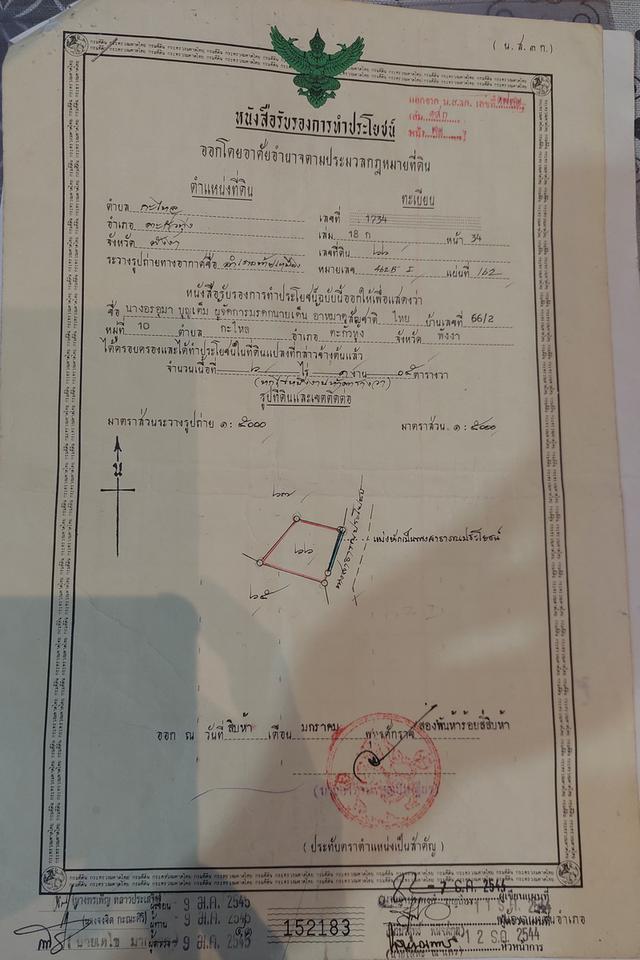 ( น.ส. ๓ ก.)
หนังสือรับรองการทำประโยชน์
ออกจาก น.ส.๓ก. เลขที่
เล่ม
หน้า
ออกโดยอาศัยอำนาจตามประมวลกฎหมายที่ดิน
ตำแหน่งที่ดิน
ทะเบียน
ตำบล กะไหล
เลขที่ 1734
อำเภอ ตะกั่วทุ่ง
เล่ม 18 ก หน้า 34
จังหวัด พังงา
เลขที่ดิน ๖๖
ระวางรูปถ่ายทางอากาศชื่อ
หมายเลข 4625 I แผ่นที่ 162
หนังสือรับรองการทำประโยชน์ฉบับนี้ออกให้เพื่อแสดงว่า
ชื่อ นางอรอุมา บุญเต็ม ผู้จัดการมรดกนายเต็น อาหมาด สัญชาติ ไทย บ้านเลขที่ 66/2
หมู่ที่ 10 ตำบล กะไหล อำเภอ ตะกั่วทุ่ง จังหวัด พังงา
ได้ครอบครองและได้ทำประโยชน์ในที่ดินแปลงที่กล่าวข้างต้นแล้ว
จำนวนเนื้อที่ ๖ ไร่ ๑ งาน ๐๕ ตารางวา
(หกไร่หนึ่งงานห้าตารางวา)
รูปที่ดินและเขตติดต่อ
มาตราส่วนระวางรูปถ่าย ๑ : ๕๐๐๐
มาตราส่วน ๑ : ๕๐๐๐
น
๖๗
๖๖
ทางสาธารณประโยชน์
แบ่งหักเป็นทางสาธารณประโยชน์
๖๕
ออก ณ วันที่ สิบห้า เดือน มกราคม พุทธศักราช สองพันห้าร้อยสี่สิบห้า
( ประทับตราตำแหน่งเป็นสำคัญ )
ผู้เขียน 9 ม.ค. 2545
ผู้ทาน 9 ม.ค. 2545
ผู้ตรวจ 9 ม.ค. 2545
152183
- 7 ธ.ค. 2544
ผู้เขียนแผนที่
1 2 ธ.ค. 2544
หัวหน้าการ